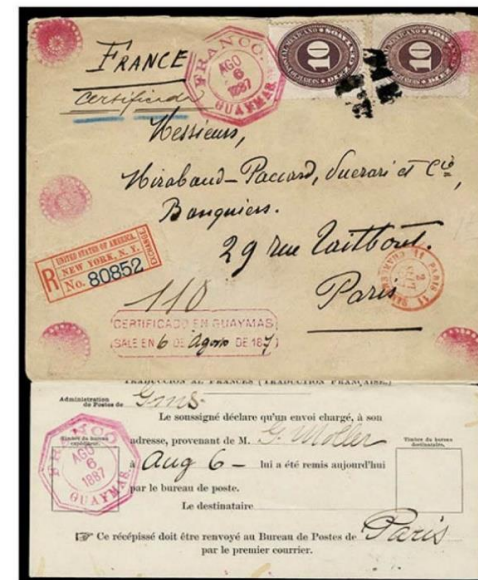 FRANCE
Certificado
FRANCO
AGO
6
1887
GUAYMAS
10
10
Messieurs,
Mirabaud-Paccard, Puerari et Cie,
Banquiers.
29 rue Taitbout.
Paris
UNITED STATES OF AMERICA.
EXCHANGE
R
NEW YORK, N. Y.
No. 80852
110
CERTIFICADO EN GUAYMAS
SALE EN 6 DE Agosto DE 187
TRADUCCION AL FRANCES (TRADUCTION FRANÇAISE.)
Administration
de Postes de
Le soussigné déclare qu'un envoi chargé, à son
adresse, provenant de M. G. Möller
à Aug 6 - lui a été remis aujourd'hui
par le bureau de poste.
Le destinataire
Timbre du bureau
destinataire.
FRANCO
AGO
6
1887
GUAYMAS
Ce récépissé doit être renvoyé au Bureau de Postes de Paris
par le premier courrier.